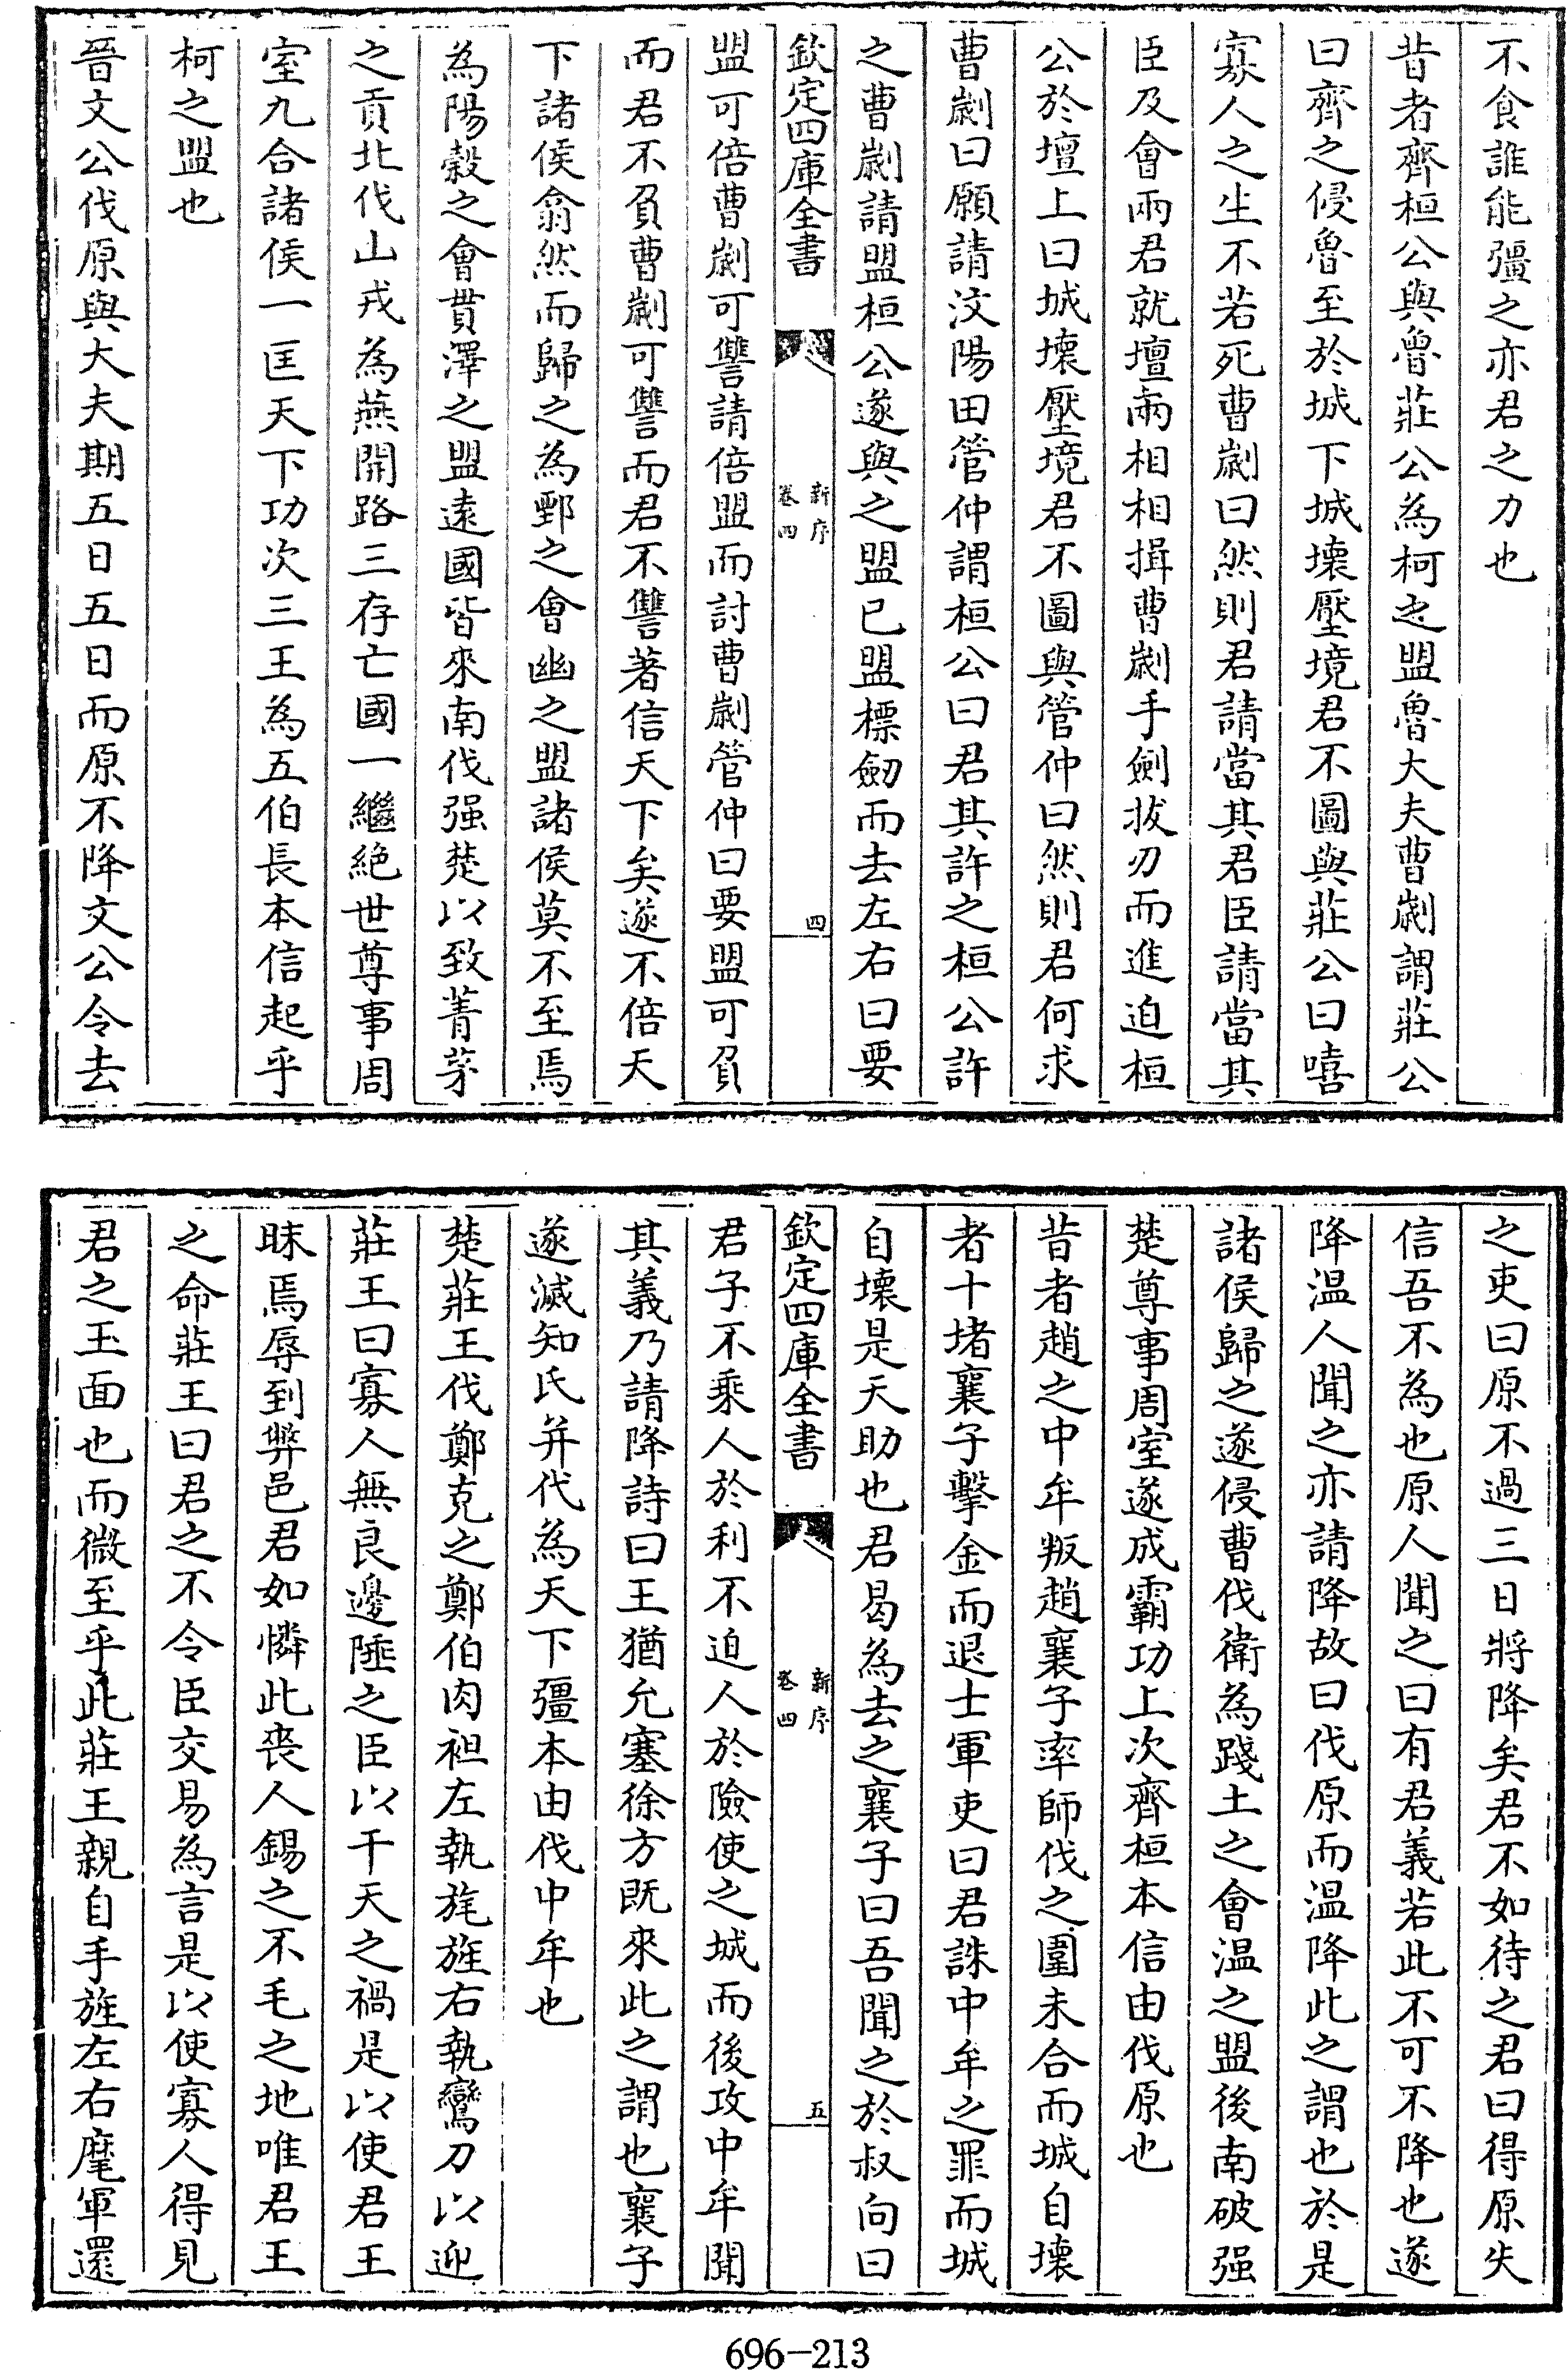 不食誰能彊之亦君之力也
昔者齊桓公與魯莊公為柯之盟魯大夫曹劌謂莊公
曰齊之侵魯至於城下城壊壓境君不圖與莊公曰嘻
寡人之生不若死曹劌曰然則君請當其君臣請當其
臣及會兩君就壇兩相相揖曹劌手劍拔刃而進迫桓
公於壇上曰城壊壓境君不圖與管仲曰然則君何求
曹劌曰願請汶陽田管仲謂桓公曰君其許之桓公許
之曹劌請盟桓公遂與之盟已盟標劒而去左右曰要
欽定四庫全書
新序
卷四
四
盟可倍曹劌可讐請倍盟而討曹劌管仲曰要盟可負
而君不負曹劌可讐而君不讐著信天下矣遂不倍天
下諸侯翕然而歸之為鄄之會幽之盟諸侯莫不至焉
為陽穀之會貫澤之盟遠國皆來南伐强楚以致菁茅
之貢北伐山戎為燕開路三存亡國一繼絶世尊事周
室九合諸侯一匡天下功次三王為五伯長本信起乎
柯之盟也
晉文公伐原與大夫期五日五日而原不降文公令去
之吏曰原不過三日將降矣君不如待之君曰得原失
信吾不為也原人聞之曰有君義若此不可不降也遂
降温人聞之亦請降故曰伐原而温降此之謂也於是
諸侯歸之遂侵曹伐衛為踐土之會温之盟後南破强
楚尊事周室遂成霸功上次齊桓本信由伐原也
昔者趙之中牟叛趙襄子率師伐之圍未合而城自壊
者十堵襄子擊金而退士軍吏曰君誅中牟之罪而城
自壊是天助也君曷為去之襄子曰吾聞之於叔向曰
欽定四庫全書
新序
卷四
五
君子不乘人於利不迫人於險使之城而後攻中牟聞
其義乃請降詩曰王猶允塞徐方既來此之謂也襄子
遂滅知氏并代為天下彊本由伐中牟也
楚莊王伐鄭克之鄭伯肉袒左執旄旌右執鸞刀以迎
莊王曰寡人無良邊陲之臣以干天之禍是以使君王
昧焉辱到弊邑君如憐此喪人錫之不毛之地唯君王
之命莊王曰君之不令臣交易為言是以使寡人得見
君之玉面也而微至乎此莊王親自手旌左右麾軍還
696-213